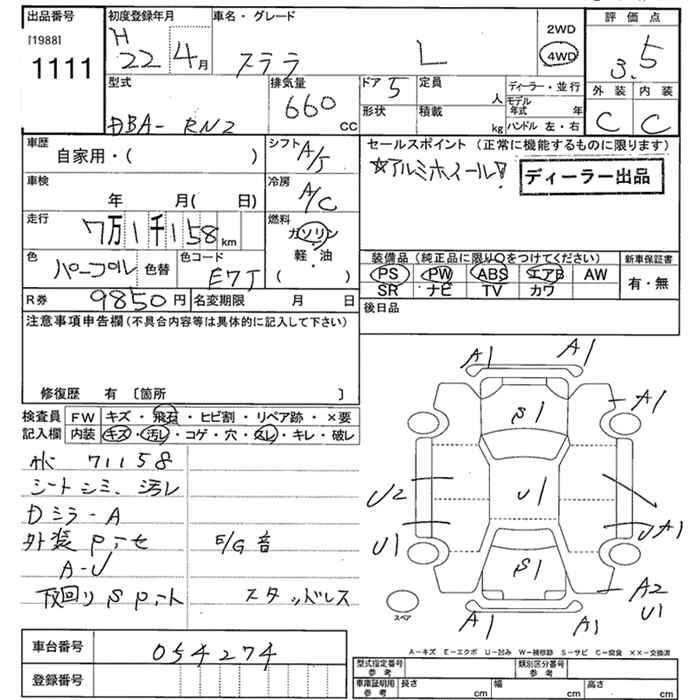 出品番号 初度登録年月 車名・グレード 2WD 評価点
[1988] H 22 4月 ステラ L 4WD 3.5
1111
型式 排気量 ドア 5 定員 人 ディーラー・並行 外装 内装
DBA- RN2 660 CC 形状 積載 kg モデル年式 年 C C
ハンドル 左・右
車歴 シフト A/T セールスポイント (正常に機能するものに限ります)
自家用・( ) ☆アルミホイール! ディーラー出品
車検 冷房 A/C
年 月( 日)
走行 7万1千158km 燃料 ガソリン・軽・油 ( )
色 パープル 色替 色コード E7J 装備品 (純正品に限り○をつけてください) 新車保証書
PS PW ABS エアB AW 有・無
SR ナビ TV カワ
R券 9850円 名変期限 月 日 後日品
注意事項申告欄 (不具合内容等は具体的に記入して下さい)
修復歴 有 〔箇所 〕
検査員 FW キズ・飛石・ヒビ割・リペア跡・×要
記入欄 内装 キズ・汚レ・コゲ・穴・スレ・キレ・破レ
71158
シートシミ、汚レ
Dミラ-A
外装 E/G音
A-U
下回りS スタッドレス
A1 A1
A1
S1
U2 U1 UA1
U1
S1 A2
U1
スペア
A1 A1
A-キズ E-エクボ U-凹み W-補修跡 S-サビ C-腐食 XX-交換済
車台番号 054274
登録番号
型式指定番号 参考 類別区分番号 参考
車庫証明用 参考 長さ cm 幅 cm 高さ cm